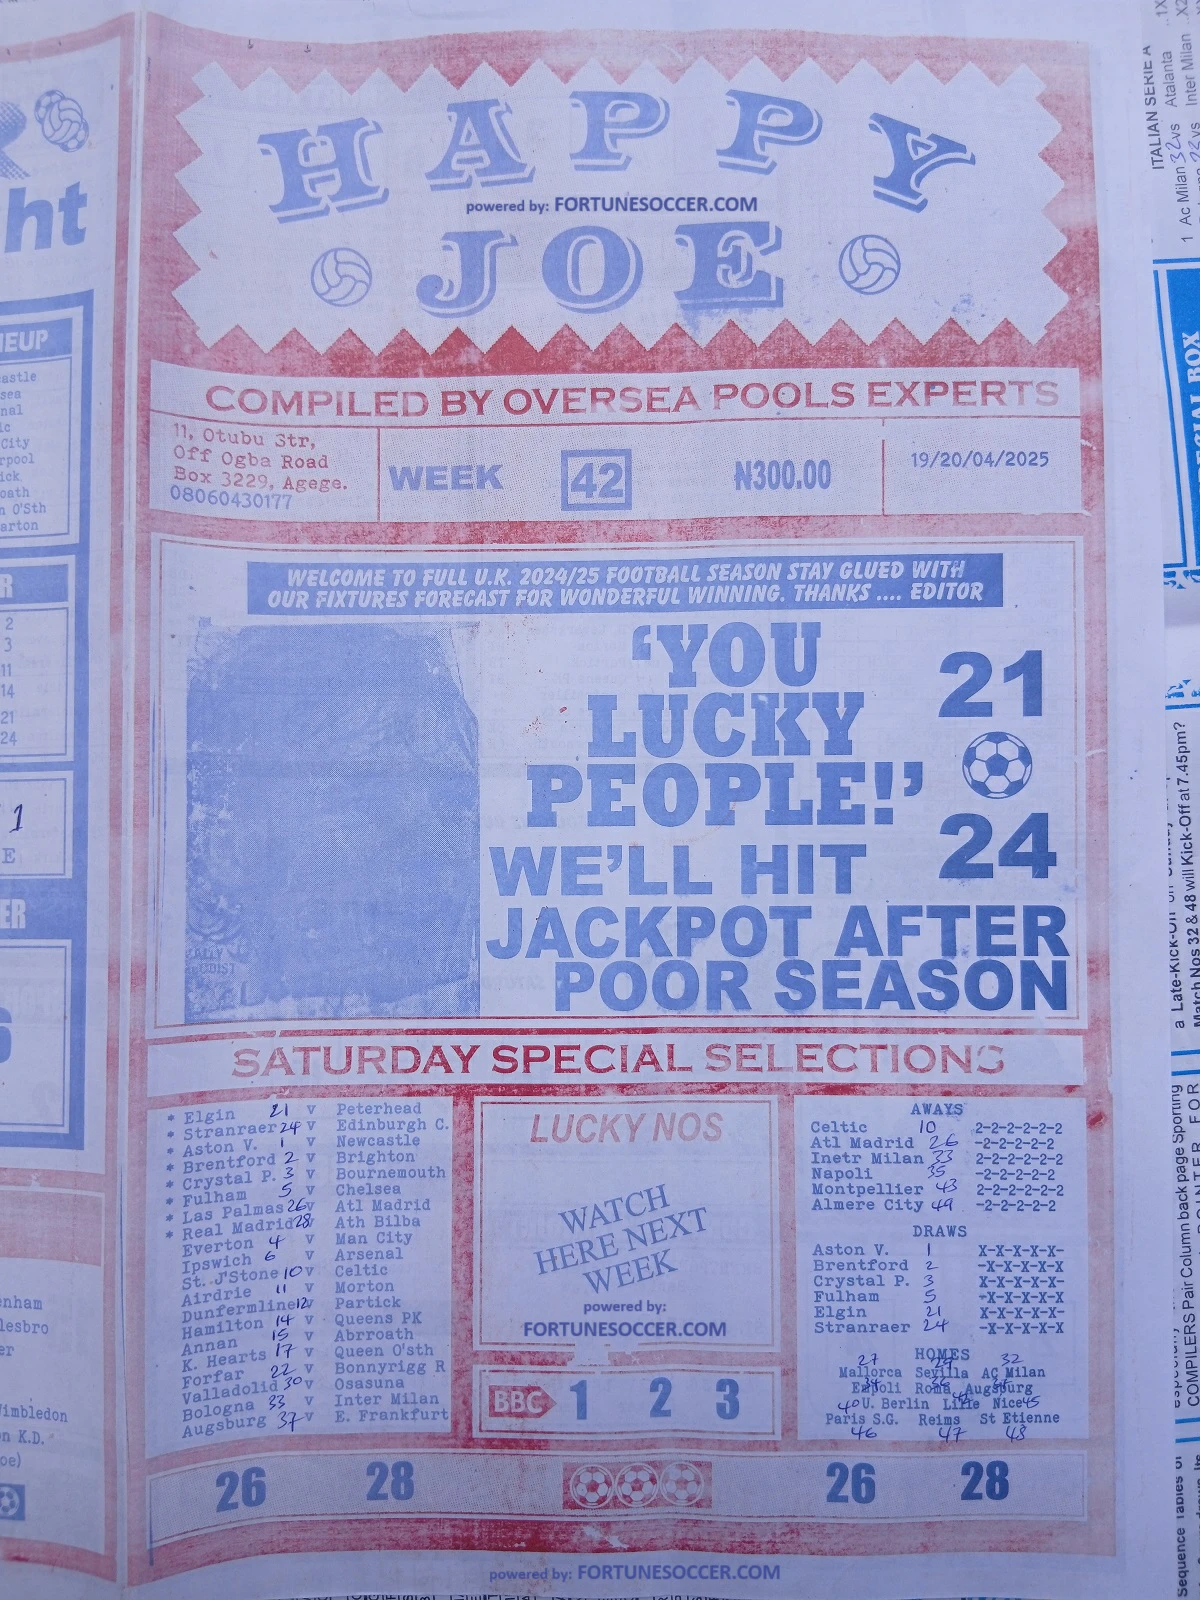 HAPPY
powered by: FORTUNESOCCER.COM
JOE
COMPILED BY OVERSEA POOLS EXPERTS
11, Otubu Str,
Off Ogba Road
Box 3229, Agege.
08060430177
WEEK 42
₦300.00
19/20/04/2025
WELCOME TO FULL U.K. 2024/25 FOOTBALL SEASON STAY GLUED WITH
OUR FIXTURES FORECAST FOR WONDERFUL WINNING. THANKS .... EDITOR
'YOU
LUCKY
PEOPLE!'
21
24
WE'LL HIT
JACKPOT AFTER
POOR SEASON
SATURDAY SPECIAL SELECTIONS
* Elgin 21 v Peterhead
* Stranraer 24 v Edinburgh C.
* Aston V. 1 v Newcastle
* Brentford 2 v Brighton
* Crystal P. 3 v Bournemouth
* Fulham 5 v Chelsea
* Las Palmas 26 v Atl Madrid
* Real Madrid 28 v Ath Bilba
Everton 4 v Man City
Ipswich 6 v Arsenal
St. J'Stone 10 v Celtic
Airdrie 11 v Morton
Dunfermline 12 v Partick
Hamilton 14 v Queens PK
Annan 15 v Abrroath
K. Hearts 17 v Queen O'sth
Forfar 22 v Bonnyrigg R
Valladolid 30 v Osasuna
Bologna 33 v Inter Milan
Augsburg 37 v E. Frankfurt
LUCKY NOS
WATCH
HERE NEXT
WEEK
powered by:
FORTUNESOCCER.COM
BBC 1 2 3
AWAYS
Celtic 10 2-2-2-2-2-2
Atl Madrid 26 -2-2-2-2-2
Inetr Milan 33 2-2-2-2-2-2
Napoli 35 -2-2-2-2-2
Montpellier 43 2-2-2-2-2-2
Almere City 49 -2-2-2-2-2
DRAWS
Aston V. 1 X-X-X-X-X-
Brentford 2 -X-X-X-X-X
Crystal P. 3 X-X-X-X-X-
Fulham 5 -X-X-X-X-X
Elgin 21 X-X-X-X-X-
Stranraer 24 -X-X-X-X-X
HOMES
27 29 32
Mallorca Sevilla AC Milan
Empoli Roma Augsburg
40 U. Berlin Lille Nice 45
Paris S.G. Reims St Etienne
46 47 48
26 28
26 28
powered by: FORTUNESOCCER.COM
ht
NEUP
castle
sea
nal
ic
City
rpool
ick
oath
n O'Sth
arton
R
2
3
11
14
21
24
1
E
ER
enham
lesbro
er
Wimbledon
n K.D.
oe)
ITALIAN SERIE A
1 Ac Milan 32 vs Atalanta ..1X
Inter Milan ..X2
SPECIAL BOX
a Late-Kick-Off on Sunday
Match Nos 32 & 48 will Kick-Off at 7.45pm?
COMPILERS Pair Column back page Sporting
POINTER FOR
Sequence Tables of